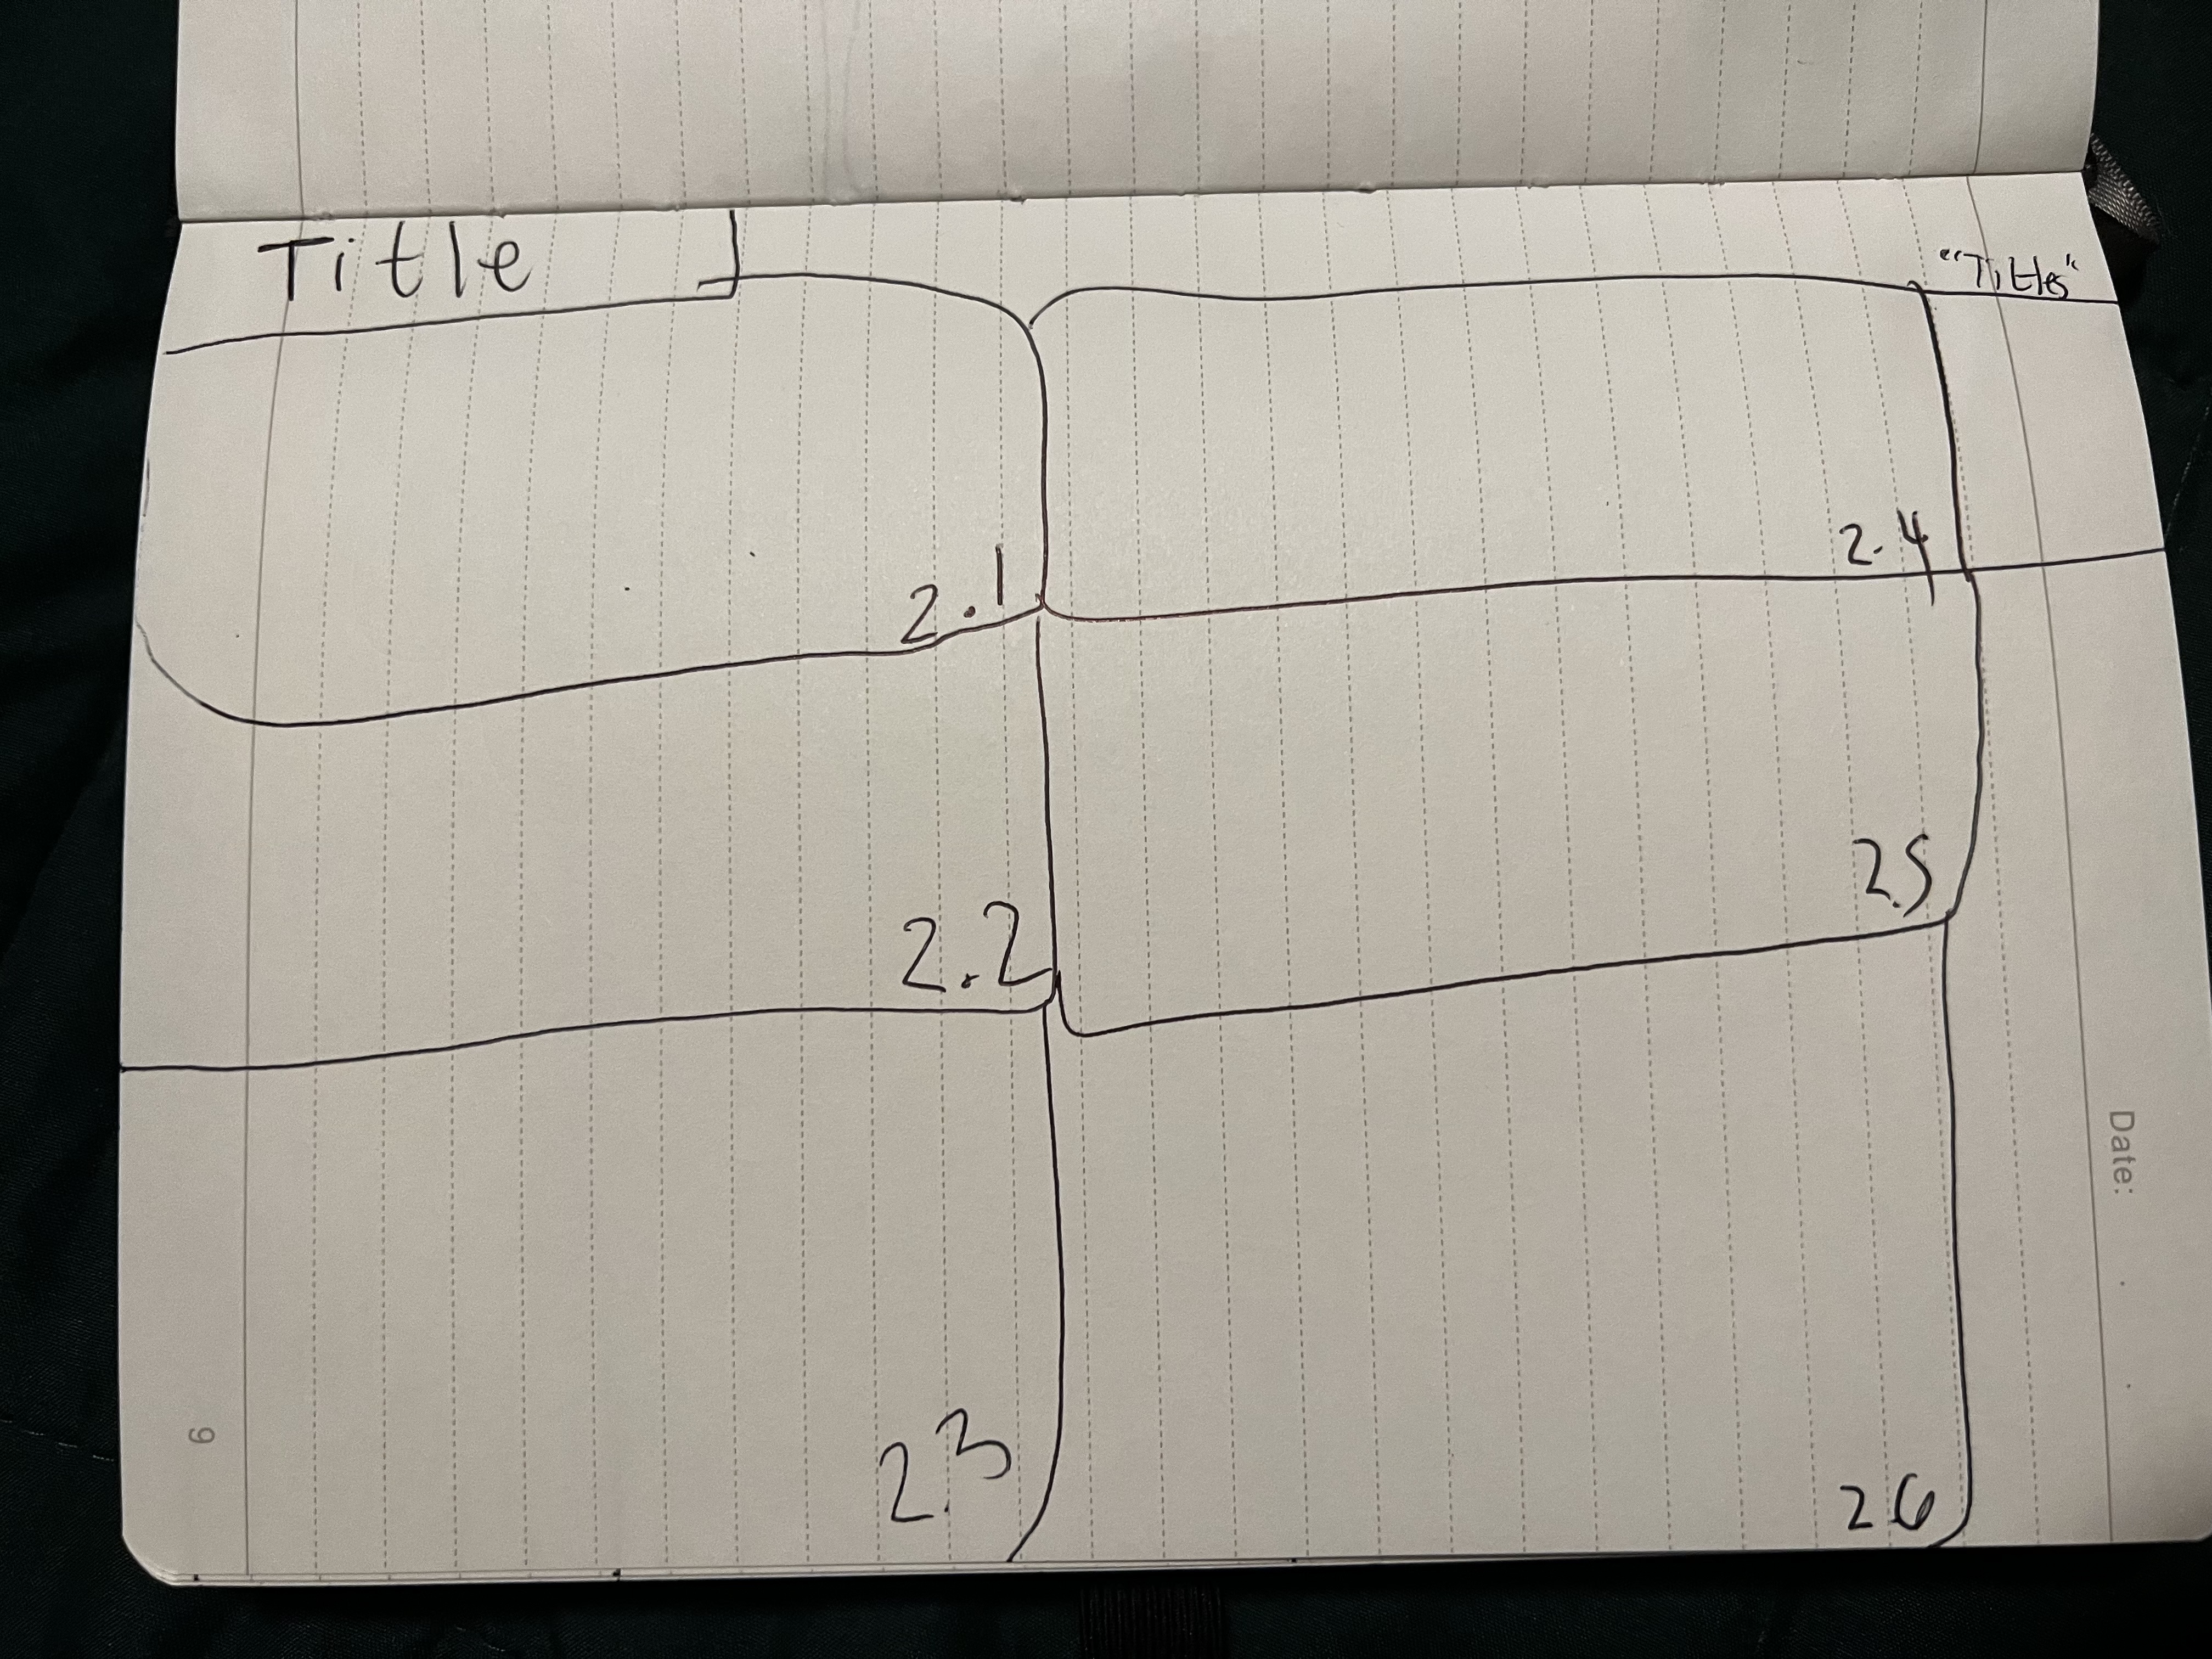 Title
"Titles"
2.1
2.4
2.2
2.5
2.3
2.6
Date:
9